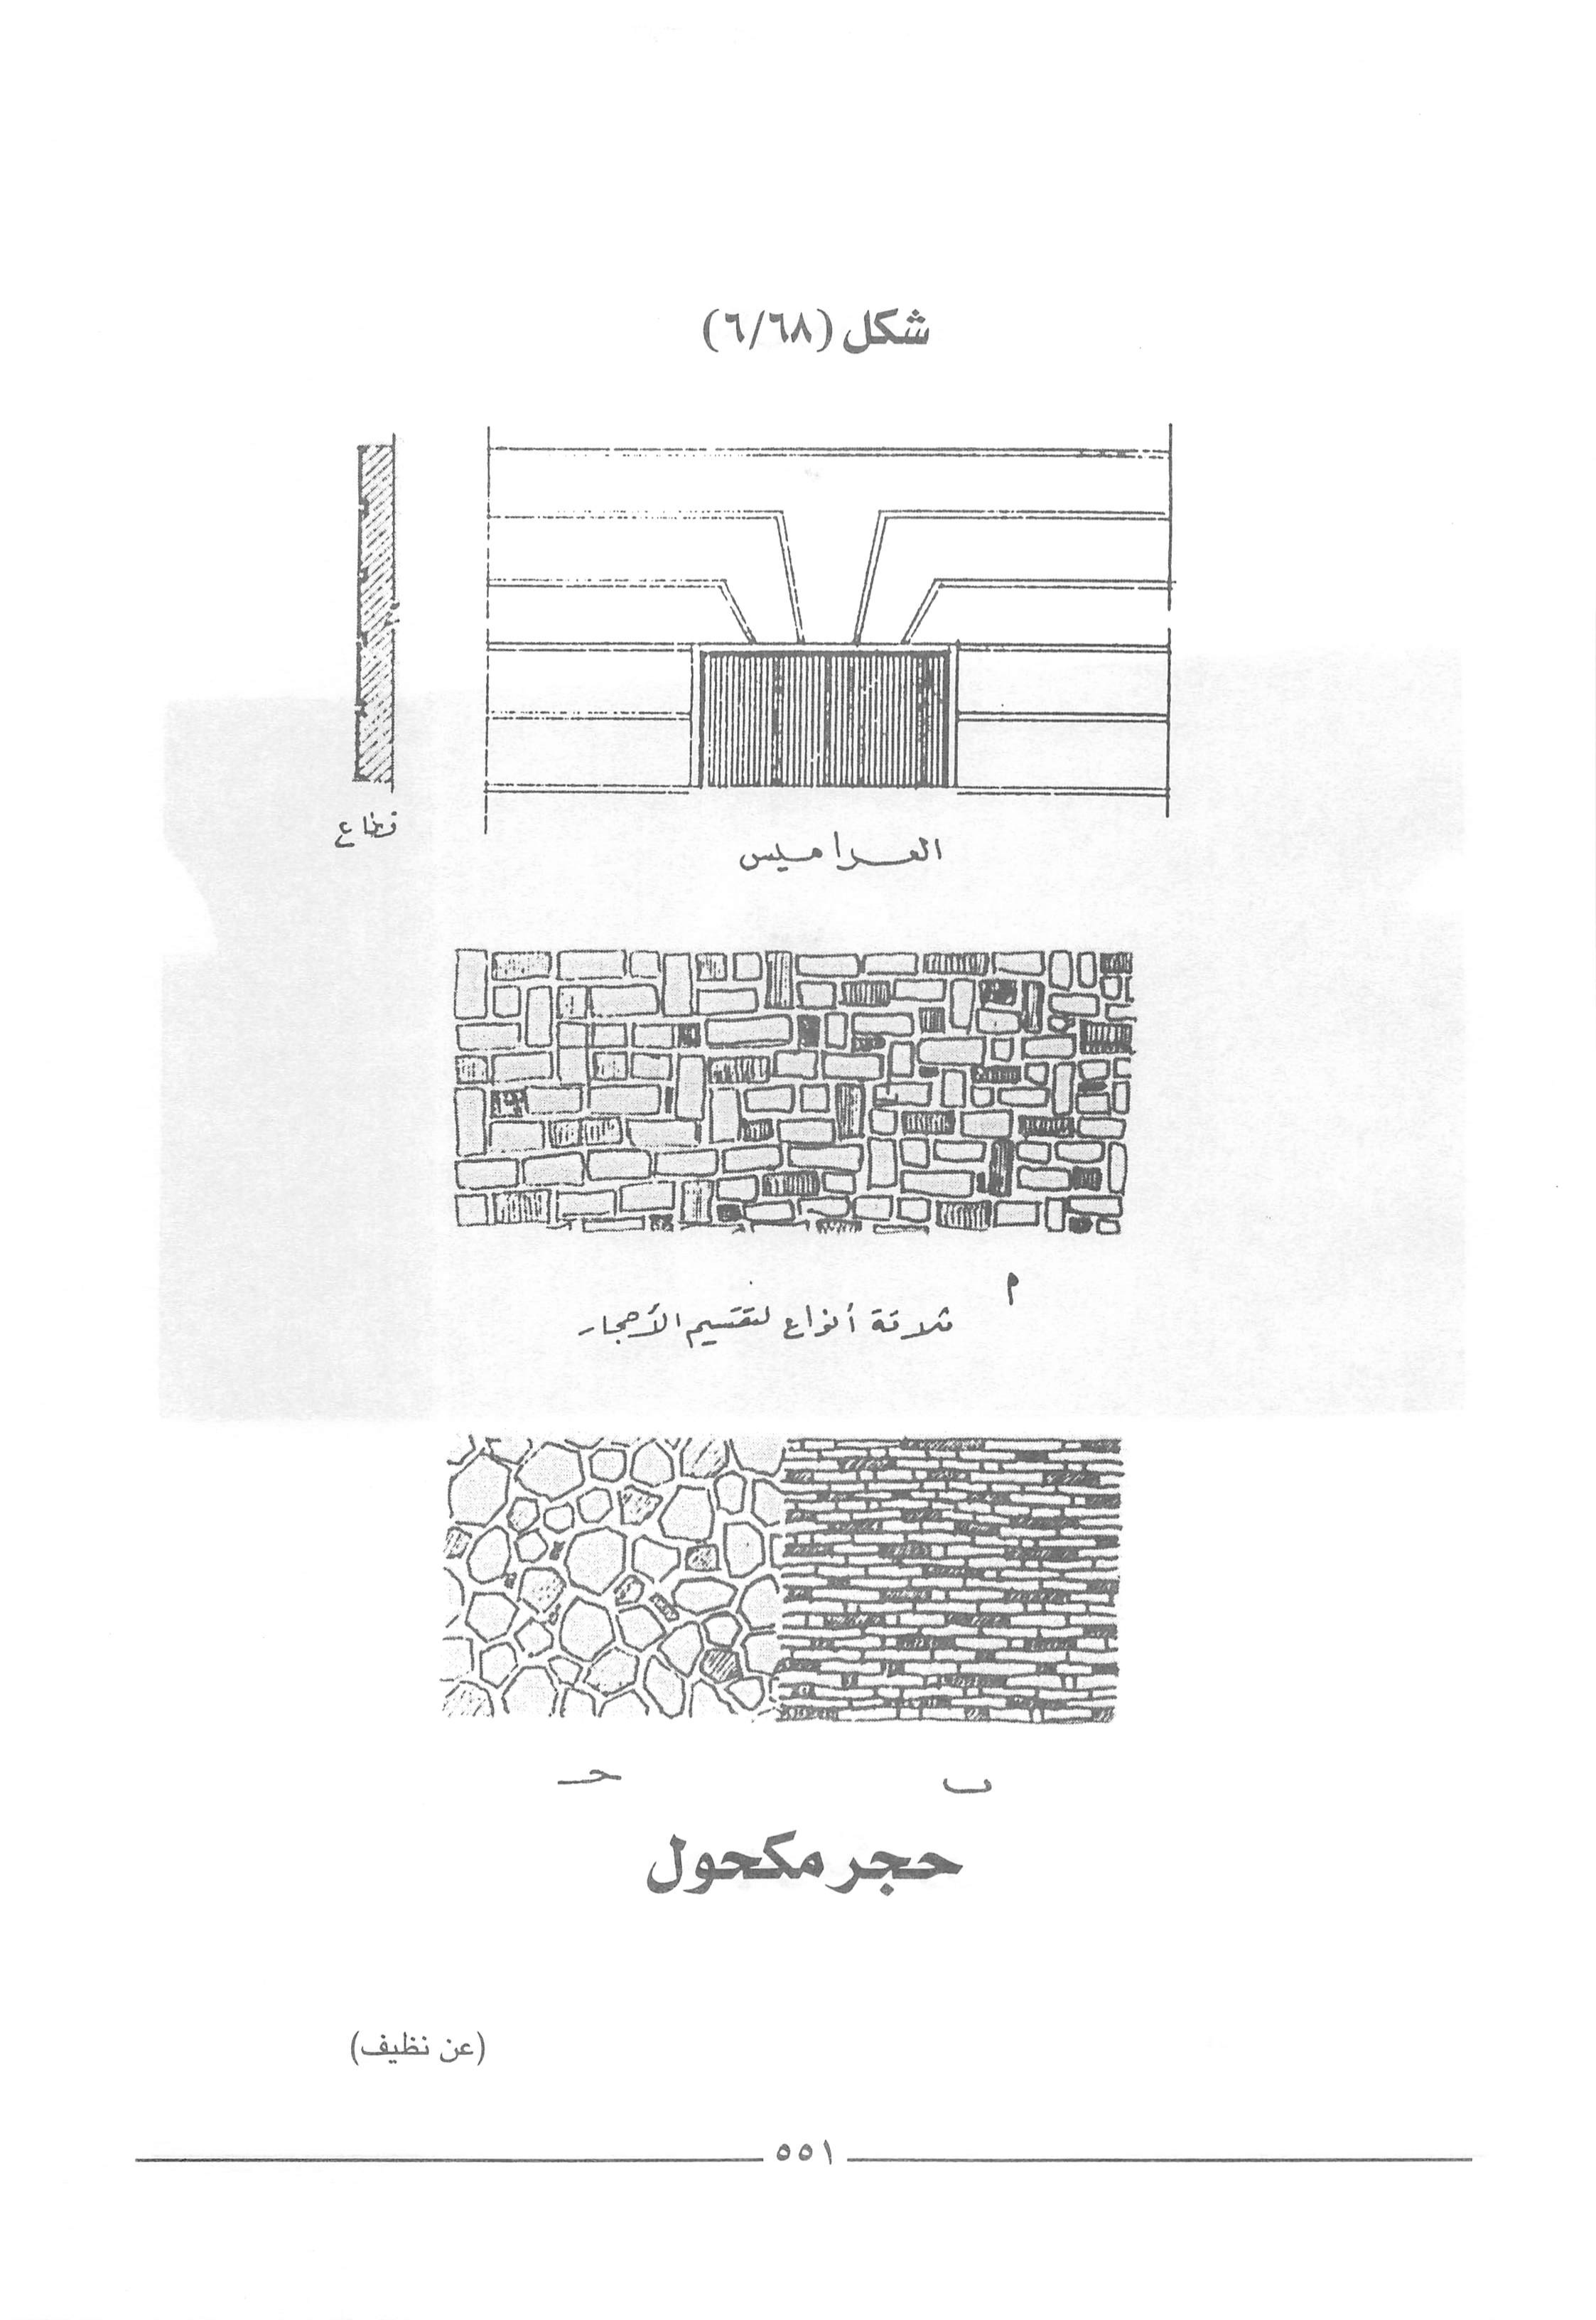 شكل (٦/٦٨)
قطاع
العراميس
أ
ثلاثة أنواع لتقسيم الأحجار
ب
حـ
حجر مكحول
(عن نظيف)
٥٥١